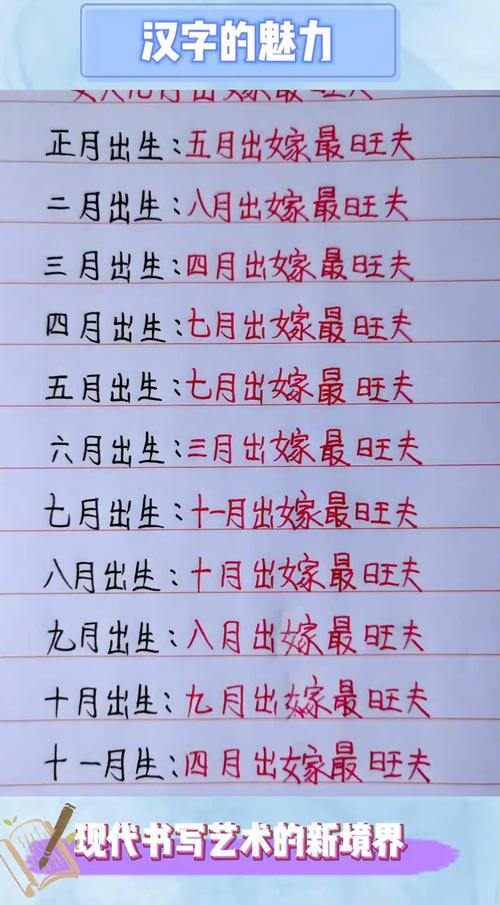 汉字的魅力
女人几月出嫁最旺夫
正月出生:五月出嫁最旺夫
二月出生:八月出嫁最旺夫
三月出生:四月出嫁最旺夫
四月出生:七月出嫁最旺夫
五月出生:七月出嫁最旺夫
六月出生:三月出嫁最旺夫
七月出生:十一月出嫁最旺夫
八月出生:十月出嫁最旺夫
九月出生:八月出嫁最旺夫
十月出生:九月出嫁最旺夫
十一月生:四月出嫁最旺夫
现代书写艺术的新境界